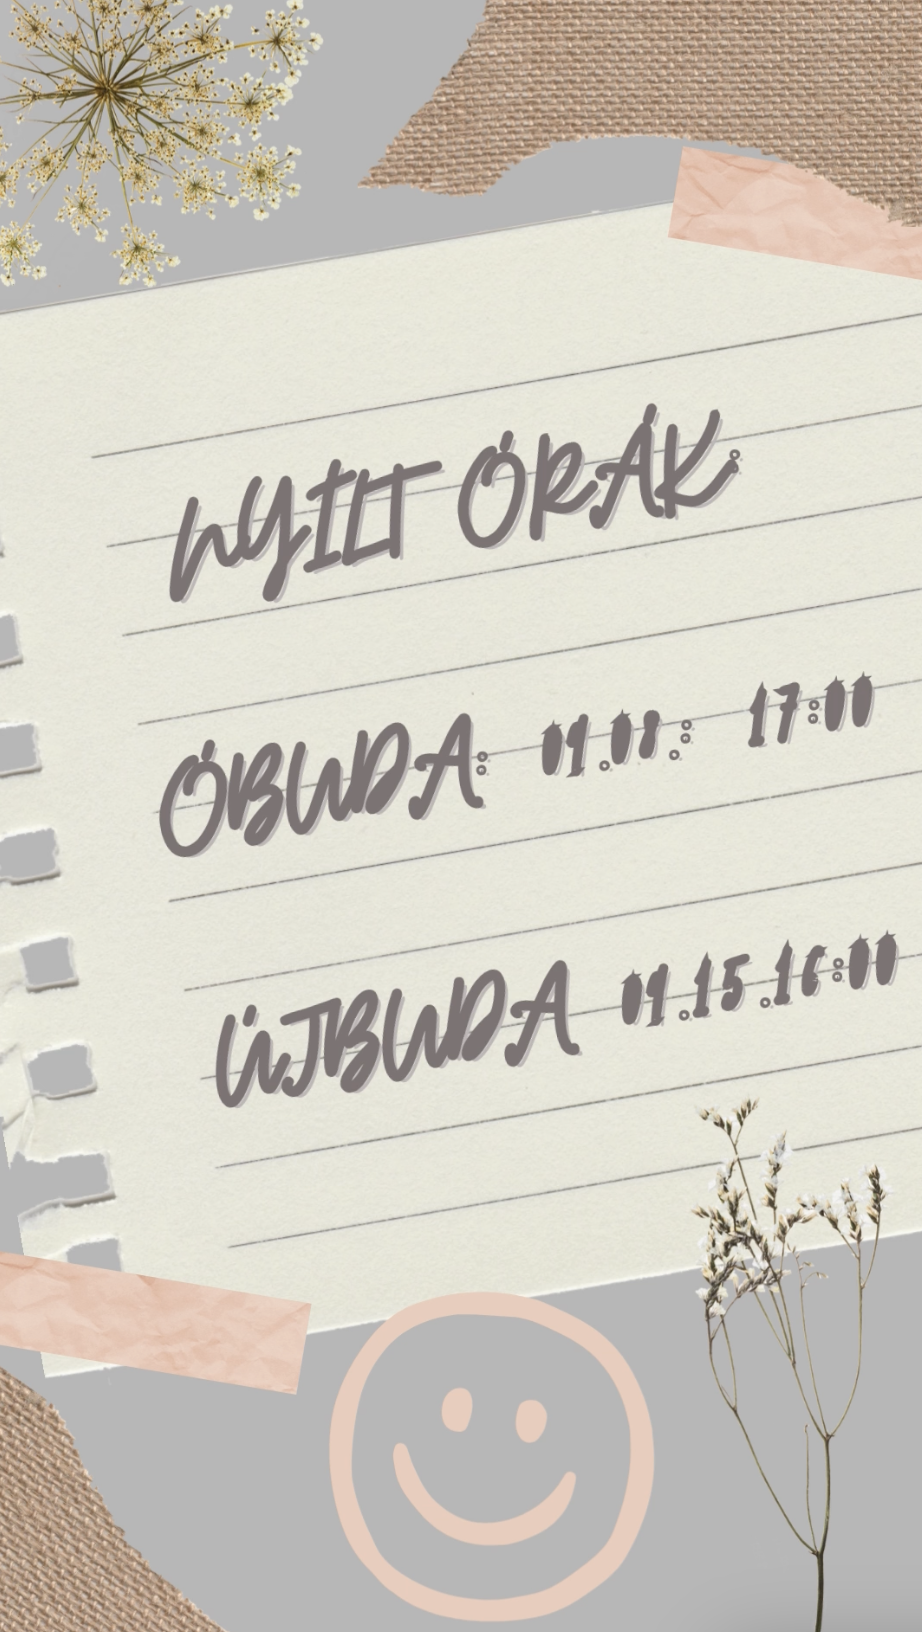 NYÍLT ÓRÁK:
ÓBUDA: 09.08.: 17:00
ÚJBUDA 09.15.16:00